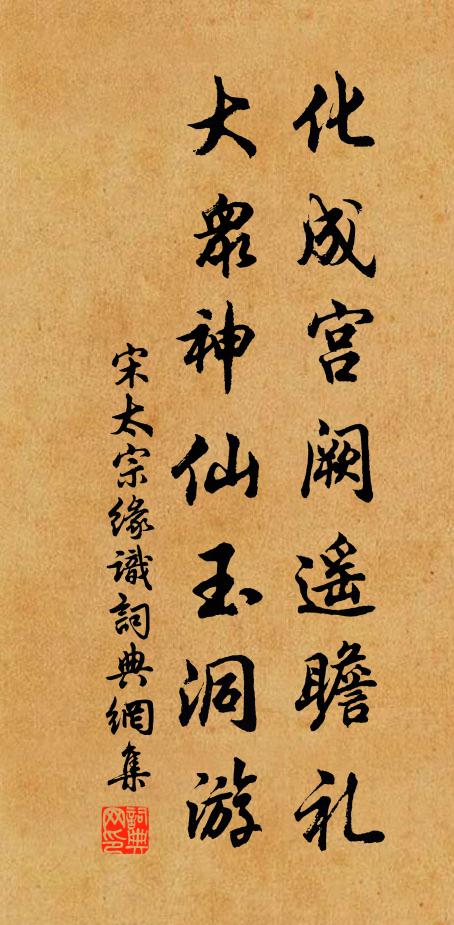 化成宫阙遥瞻礼
大眾神仙玉洞游
宋太宗緣識詞典網集
詞典网印